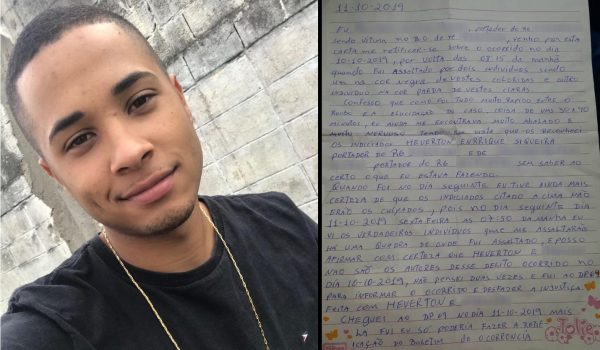 11-10-2019
EU , portador do RG
sendo vitima no B.O. de Nº , venho por esta
carta me retificar-se sobre o ocorrido no dia
10-10-2019, por volta das 08:15 da manhã
quando fui assaltado por dois individuos sendo
um na cor negra de vestes coloridas e outro
individuo na cor parda de vestes claras.
Confesso que como foi tudo muito rapido entre o
Roubo e a elucidação do caso, coisa de uns 30 a 40
minutos, eu ainda me encontrava muito abalado e
muito nervoso tempo que reconheci
os indiciados HEVERTON ENRRIQUE SIQUEIRA
portador do RG E DE
portador do RG sem saber ao
certo o que eu estava fazendo.
Quando foi no dia seguinte eu tive ainda mais
certeza de que os indiciados citado a cima não
erão os culpados, pois no dia seguinte dia
11-10-2019 sexta feira as 07:50 da manhã eu
vi os verdadeiros individuos que me assaltarão
há uma quadra de onde fui assaltado, e posso
afirmar com certeza que HEVERTON E
não são os autores desse delito ocorrido no
dia 10-10-2019, não pensei duas vezes e fui ao DP 09
para informar o ocorrido e desfazer a injustiça
feita com HEVERTON E
Cheguei ao DP 09 no dia 11-10-2019 mais
lá fui eu só poderia fazer a retif-
icação do Boletim de ocorrencia
Jolie